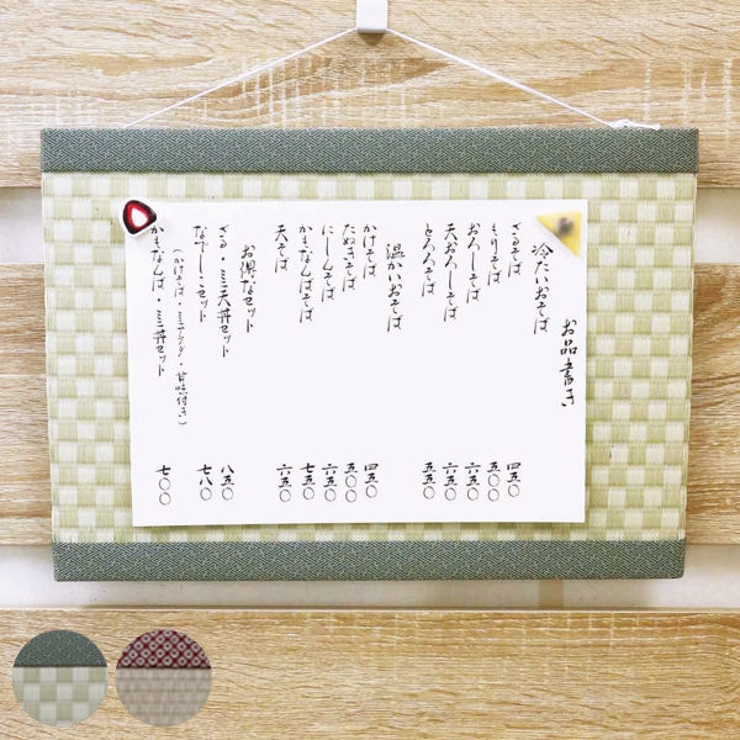 お品書き
冷たいおそば
ざるそば 四五〇
もりそば 五〇〇
おろしそば 六五〇
天おろしそば 六五〇
とろろそば 五五〇
温かいおそば
かけそば 四五〇
たぬきそば 五〇〇
にしんそば 六五〇
かもなんばそば 七五〇
天そば 六五〇
お得なセット
ざる・ミニ天丼セット 八五〇
なでしこセット 七八〇
（かけそば・ミニサラダ・甘味付き）
かもなんば・ミニ丼セット 七〇〇